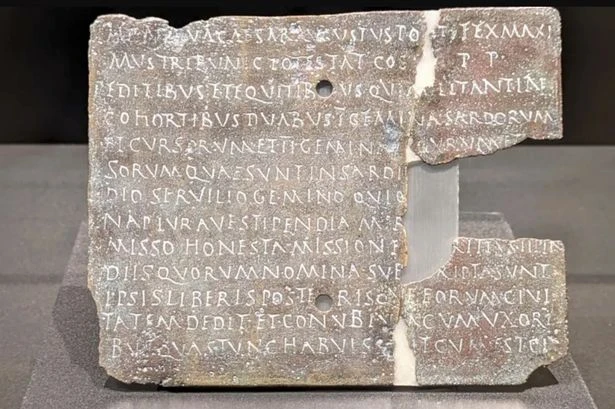 CAESAR AVGVSTVS PO TIFEX MAXI
MVS TRIBVNIC POTESTAT COS P P
PEDITIBVS ET EQVITIB VS QVI MILITANT IN
COHORTIBVS DVABVS I GEMINA SARDORVM
ET CVRSORVM ET II GEMINA GVRVM
SORVM QVAE SVNT IN SARDI
DIO SERVILIO GEMINO QVI
NA PLVRAVE STIPENDIA M
MISSO HONESTA MISSIONE
DIIS QVORVM NOMINA SVB RIPTA SVNT
IPSIS LIBERIS POSTERISQ E EORVM CIVI
TATEM DEDIT ET CONVBIV M CVM VXORI
BVS QVAS TVNC HABVISSE T CVM EST CI